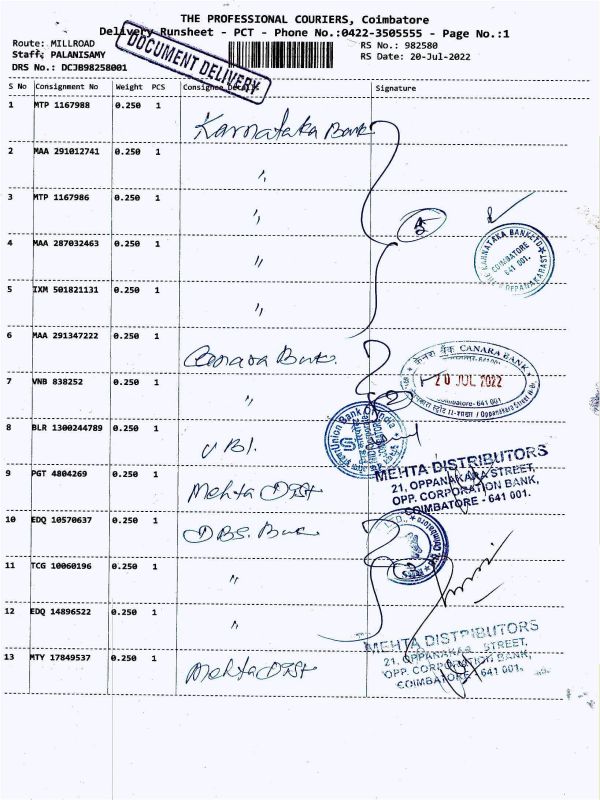 THE PROFESSIONAL COURIERS, Coimbatore
Delivery Runsheet - PCT - Phone No.:0422-3505555 - Page No.:1
Route: MILLROAD
RS No.: 982580
Staff: PALANISAMY
RS Date: 20-Jul-2022
DRS No.: DCJB98258001
DOCUMENT DELIVERY
S No Consignment No Weight PCS Consignee Details Signature
1 MTP 1167988 0.250 1 Karnataka Bank
2 MAA 291012741 0.250 1 "
3 MTP 1167986 0.250 1 "
4 MAA 287032463 0.250 1 "
THE KARNATAKA BANK LTD
COIMBATORE
641 001.
5 IXM 501821131 0.250 1 "
6 MAA 291347222 0.250 1 Canara Bank.
केनरा बैंक CANARA BANK
20 JUL 2022
Coimbatore- 641 001
Oppanakara Street
7 VNB 838252 0.250 1 "
8 BLR 1300244789 0.250 1 UBI.
Union Bank Of India
9 PGT 4804269 0.250 1 Mehta Dist
MEHTA DISTRIBUTORS
21, OPPANAKARA STREET,
OPP. CORPORATION BANK,
COIMBATORE - 641 001.
10 EDQ 10570637 0.250 1 DBS. Bank
LTD., Coimbatore
11 TCG 10060196 0.250 1 "
12 EDQ 14896522 0.250 1 "
13 MTY 17849537 0.250 1 Mehta Dist
MEHTA DISTRIBUTORS
21, OPPANAKARA STREET,
OPP. CORPORATION BANK,
COIMBATORE - 641 001.